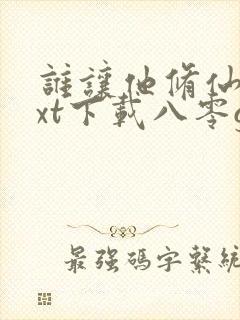 誰讓他脩仙
xt下載八零
最強碼字繫統